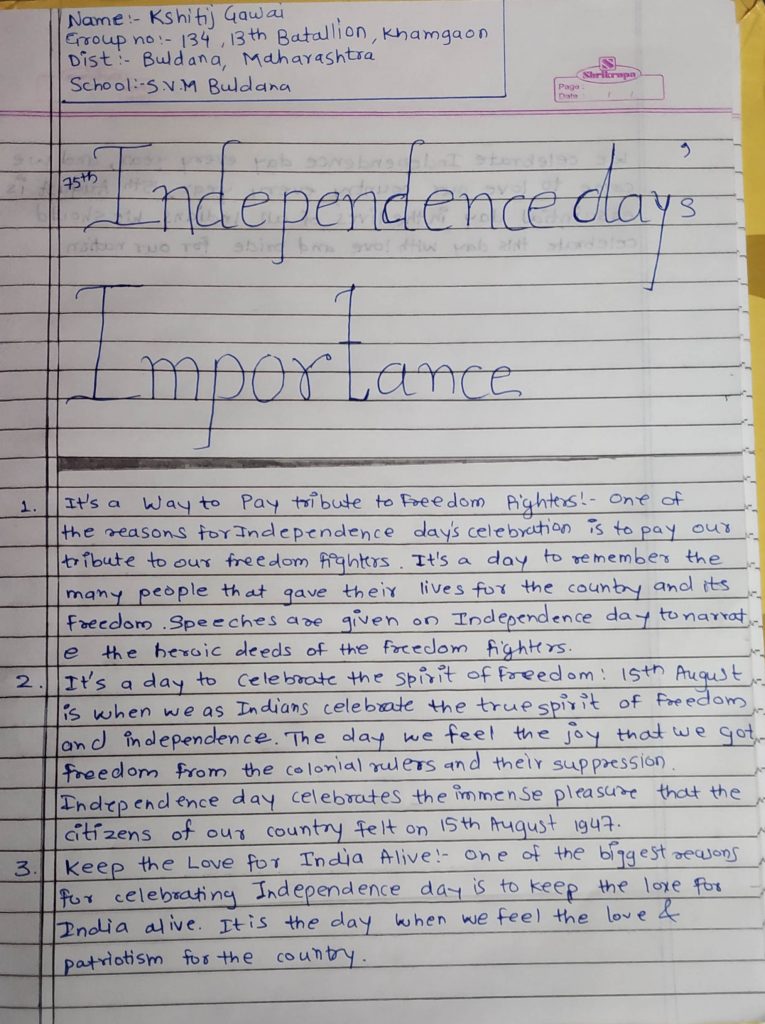 Name:- Kshitij Gawai
Group no:- 134, 13th Batallion, Khamgaon
Dist:- Buldana, Maharashtra
School:- S.V.M Buldana
S
Shrikrupa
Page :
Date : / /
75th Independence day's
Importance
1. It's a Way to Pay tribute to Freedom Fighters!- One of
the reasons for Independence day's celebration is to pay our
tribute to our freedom fighters. It's a day to remember the
many people that gave their lives for the country and its
freedom. Speeches are given on Independence day to narrat
e the heroic deeds of the freedom fighters.
2. It's a day to celebrate the spirit of Freedom: 15th August
is when we as Indians celebrate the true spirit of freedom
and independence. The day we feel the joy that we got
freedom from the colonial rulers and their suppression.
Independence day celebrates the immense pleasure that the
citizens of our country felt on 15th August 1947.
3. Keep the Love for India Alive!- One of the biggest reasons
for celebrating Independence day is to keep the love for
India alive. It is the day when we feel the love &
patriotism for the country.